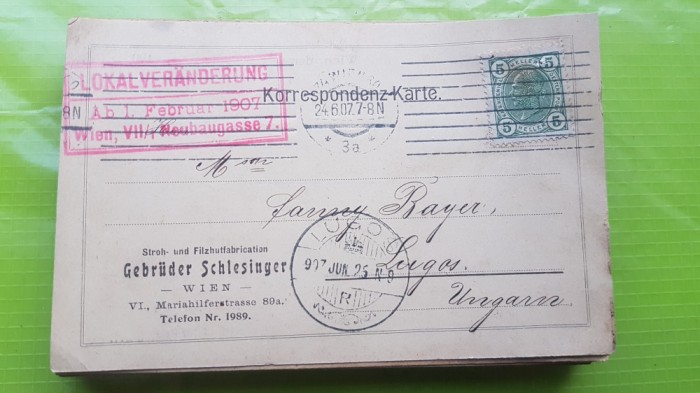 LOKALVERÄNDERUNG
Ab 1. Februar 1907
Wien, VII/ Neubaugasse 7.
Korrespondenz-Karte.
WIEN
24.6.07.7-8N
* 3a *
8N
5 HELLER 5
5 HELLER 5
Fanny Bayer,
Lugos.
Ungarn
LUGOS
907 JUN. 25 N 9
R
Stroh- und Filzhutfabrication
Gebrüder Schlesinger
— WIEN —
VI., Mariahilferstrasse 89a.
Telefon Nr. 1989.